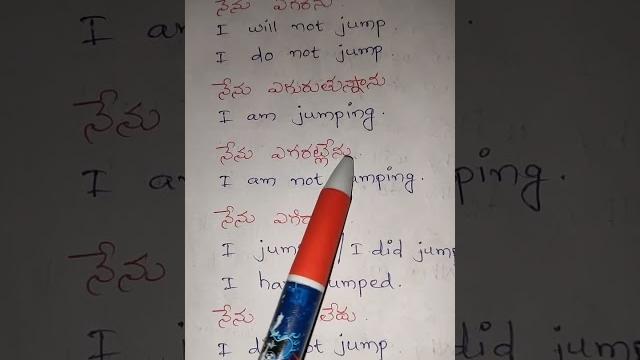 నేను ఎగరను.
I will not jump.
I do not jump.
నేను ఎగురుతున్నాను
I am jumping.
నేను ఎగరట్లేను
I am not jumping.
నేను
I / I did jump
I jumped.
నేను లేదు.
I not jump